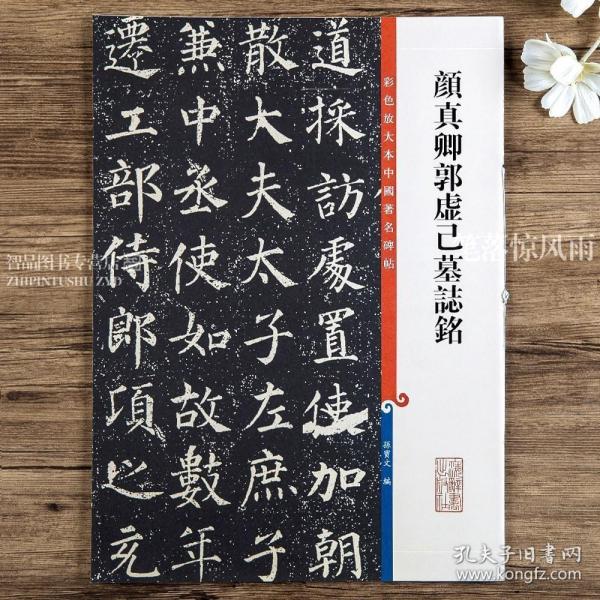 道採訪處置使加朝
散大夫太子左庶子
兼中丞使如故數年
遷工部侍郎項之充
彩色放大本中國著名碑帖
孫寶文 編
顔真卿郭虚己墓誌銘
笔落惊风雨
智品图书专营店
ZHIPINTUSHUZYD
孔夫子旧书网
www.kongfz.com